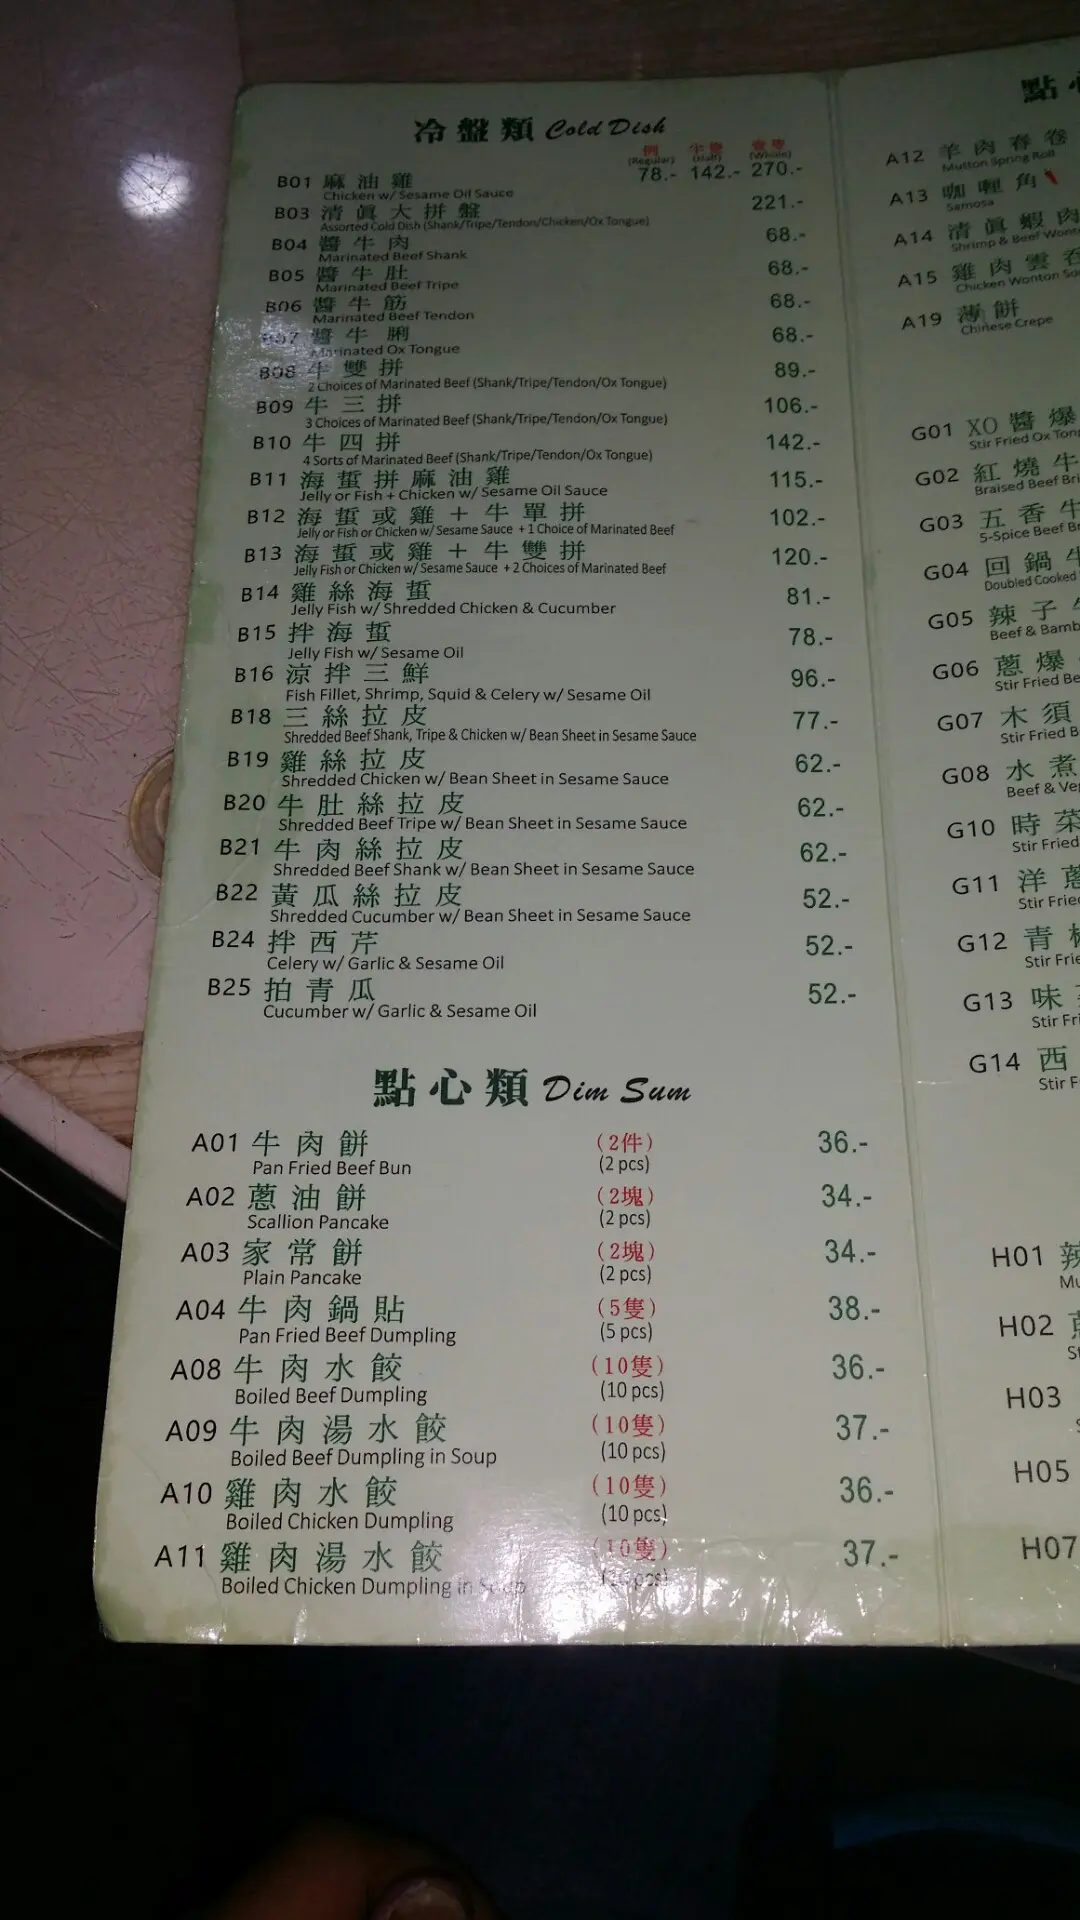 冷盤類 Cold Dish
例 半隻 壹隻
(Regular) (Half) (Whole)
B01 麻油雞 78.- 142.- 270.-
Chicken w/ Sesame Oil Sauce
B03 清眞大拼盤 221.-
Assorted Cold Dish (Shank/Tripe/Tendon/Chicken/Ox Tongue)
B04 醬牛肉 68.-
Marinated Beef Shank
B05 醬牛肚 68.-
Marinated Beef Tripe
B06 醬牛筋 68.-
Marinated Beef Tendon
B07 醬牛脷 68.-
Marinated Ox Tongue
B08 牛雙拼 89.-
2 Choices of Marinated Beef (Shank/Tripe/Tendon/Ox Tongue)
B09 牛三拼 106.-
3 Choices of Marinated Beef (Shank/Tripe/Tendon/Ox Tongue)
B10 牛四拼 142.-
4 Sorts of Marinated Beef (Shank/Tripe/Tendon/Ox Tongue)
B11 海蜇拼麻油雞 115.-
Jelly or Fish + Chicken w/ Sesame Oil Sauce
B12 海蜇或雞+牛單拼 102.-
Jelly or Fish or Chicken w/ Sesame Sauce + 1 Choice of Marinated Beef
B13 海蜇或雞+牛雙拼 120.-
Jelly Fish or Chicken w/ Sesame Sauce + 2 Choices of Marinated Beef
B14 雞絲海蜇 81.-
Jelly Fish w/ Shredded Chicken & Cucumber
B15 拌海蜇 78.-
Jelly Fish w/ Sesame Oil
B16 涼拌三鮮 96.-
Fish Fillet, Shrimp, Squid & Celery w/ Sesame Oil
B18 三絲拉皮 77.-
Shredded Beef Shank, Tripe & Chicken w/ Bean Sheet in Sesame Sauce
B19 雞絲拉皮 62.-
Shredded Chicken w/ Bean Sheet in Sesame Sauce
B20 牛肚絲拉皮 62.-
Shredded Beef Tripe w/ Bean Sheet in Sesame Sauce
B21 牛肉絲拉皮 62.-
Shredded Beef Shank w/ Bean Sheet in Sesame Sauce
B22 黃瓜絲拉皮 52.-
Shredded Cucumber w/ Bean Sheet in Sesame Sauce
B24 拌西芹 52.-
Celery w/ Garlic & Sesame Oil
B25 拍青瓜 52.-
Cucumber w/ Garlic & Sesame Oil
點心類 Dim Sum
A01 牛肉餅 (2件) 36.-
Pan Fried Beef Bun (2 pcs)
A02 蔥油餅 (2塊) 34.-
Scallion Pancake (2 pcs)
A03 家常餅 (2塊) 34.-
Plain Pancake (2 pcs)
A04 牛肉鍋貼 (5隻) 38.-
Pan Fried Beef Dumpling (5 pcs)
A08 牛肉水餃 (10隻) 36.-
Boiled Beef Dumpling (10 pcs)
A09 牛肉湯水餃 (10隻) 37.-
Boiled Beef Dumpling in Soup (10 pcs)
A10 雞肉水餃 (10隻) 36.-
Boiled Chicken Dumpling (10 pcs)
A11 雞肉湯水餃 (10隻) 37.-
Boiled Chicken Dumpling in Soup (10 pcs)
點
A12 羊肉春卷
Mutton Spring Roll
A13 咖喱角
Samosa
A14 清眞蝦肉
Shrimp & Beef
A15 雞肉雲吞
Chicken Wonton
A19 薄餅
Chinese Crepe
G01 XO醬爆
Stir Fried Ox
G02 紅燒牛
Braised Beef
G03 五香牛
5-Spice Beef
G04 回鍋牛
Doubled Cooked
G05 辣子
Beef & Bamb
G06 蔥爆
Stir Fried Be
G07 木須
Stir Fried B
G08 水煮
Beef & Veg
G10 時菜
Stir Fried
G11 洋蔥
Stir Frie
G12 青椒
Stir Frie
G13 味
Stir Fri
G14 西
Stir F
H01 辣
Mu
H02
St
H03
H05
H07